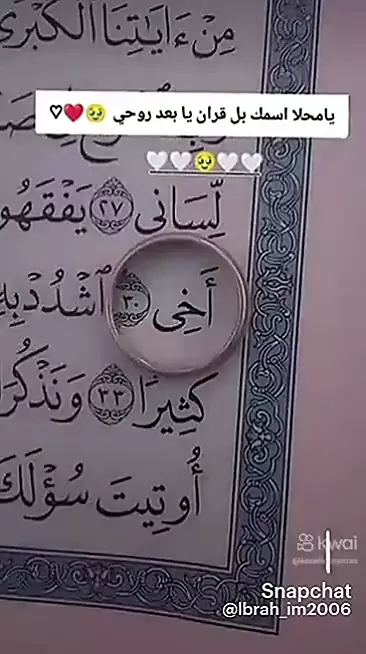 مِنْ ءَايَٰتِنَا ٱلْكُبْرَى
يامحلا اسمك بل قران يا بعد روحي 🥹❤️♡
🤍🤍🥹🤍🤍
لِّسَانِى ٢٧ يَفْقَهُو
أَخِى ٣٠ ٱشْدُدْ بِهِ
كَثِيرًا ٣٣ وَنَذْكُرَ
أُوتِيتَ سُؤْلَكَ
kwai
Snapchat
@lbrah_im2006